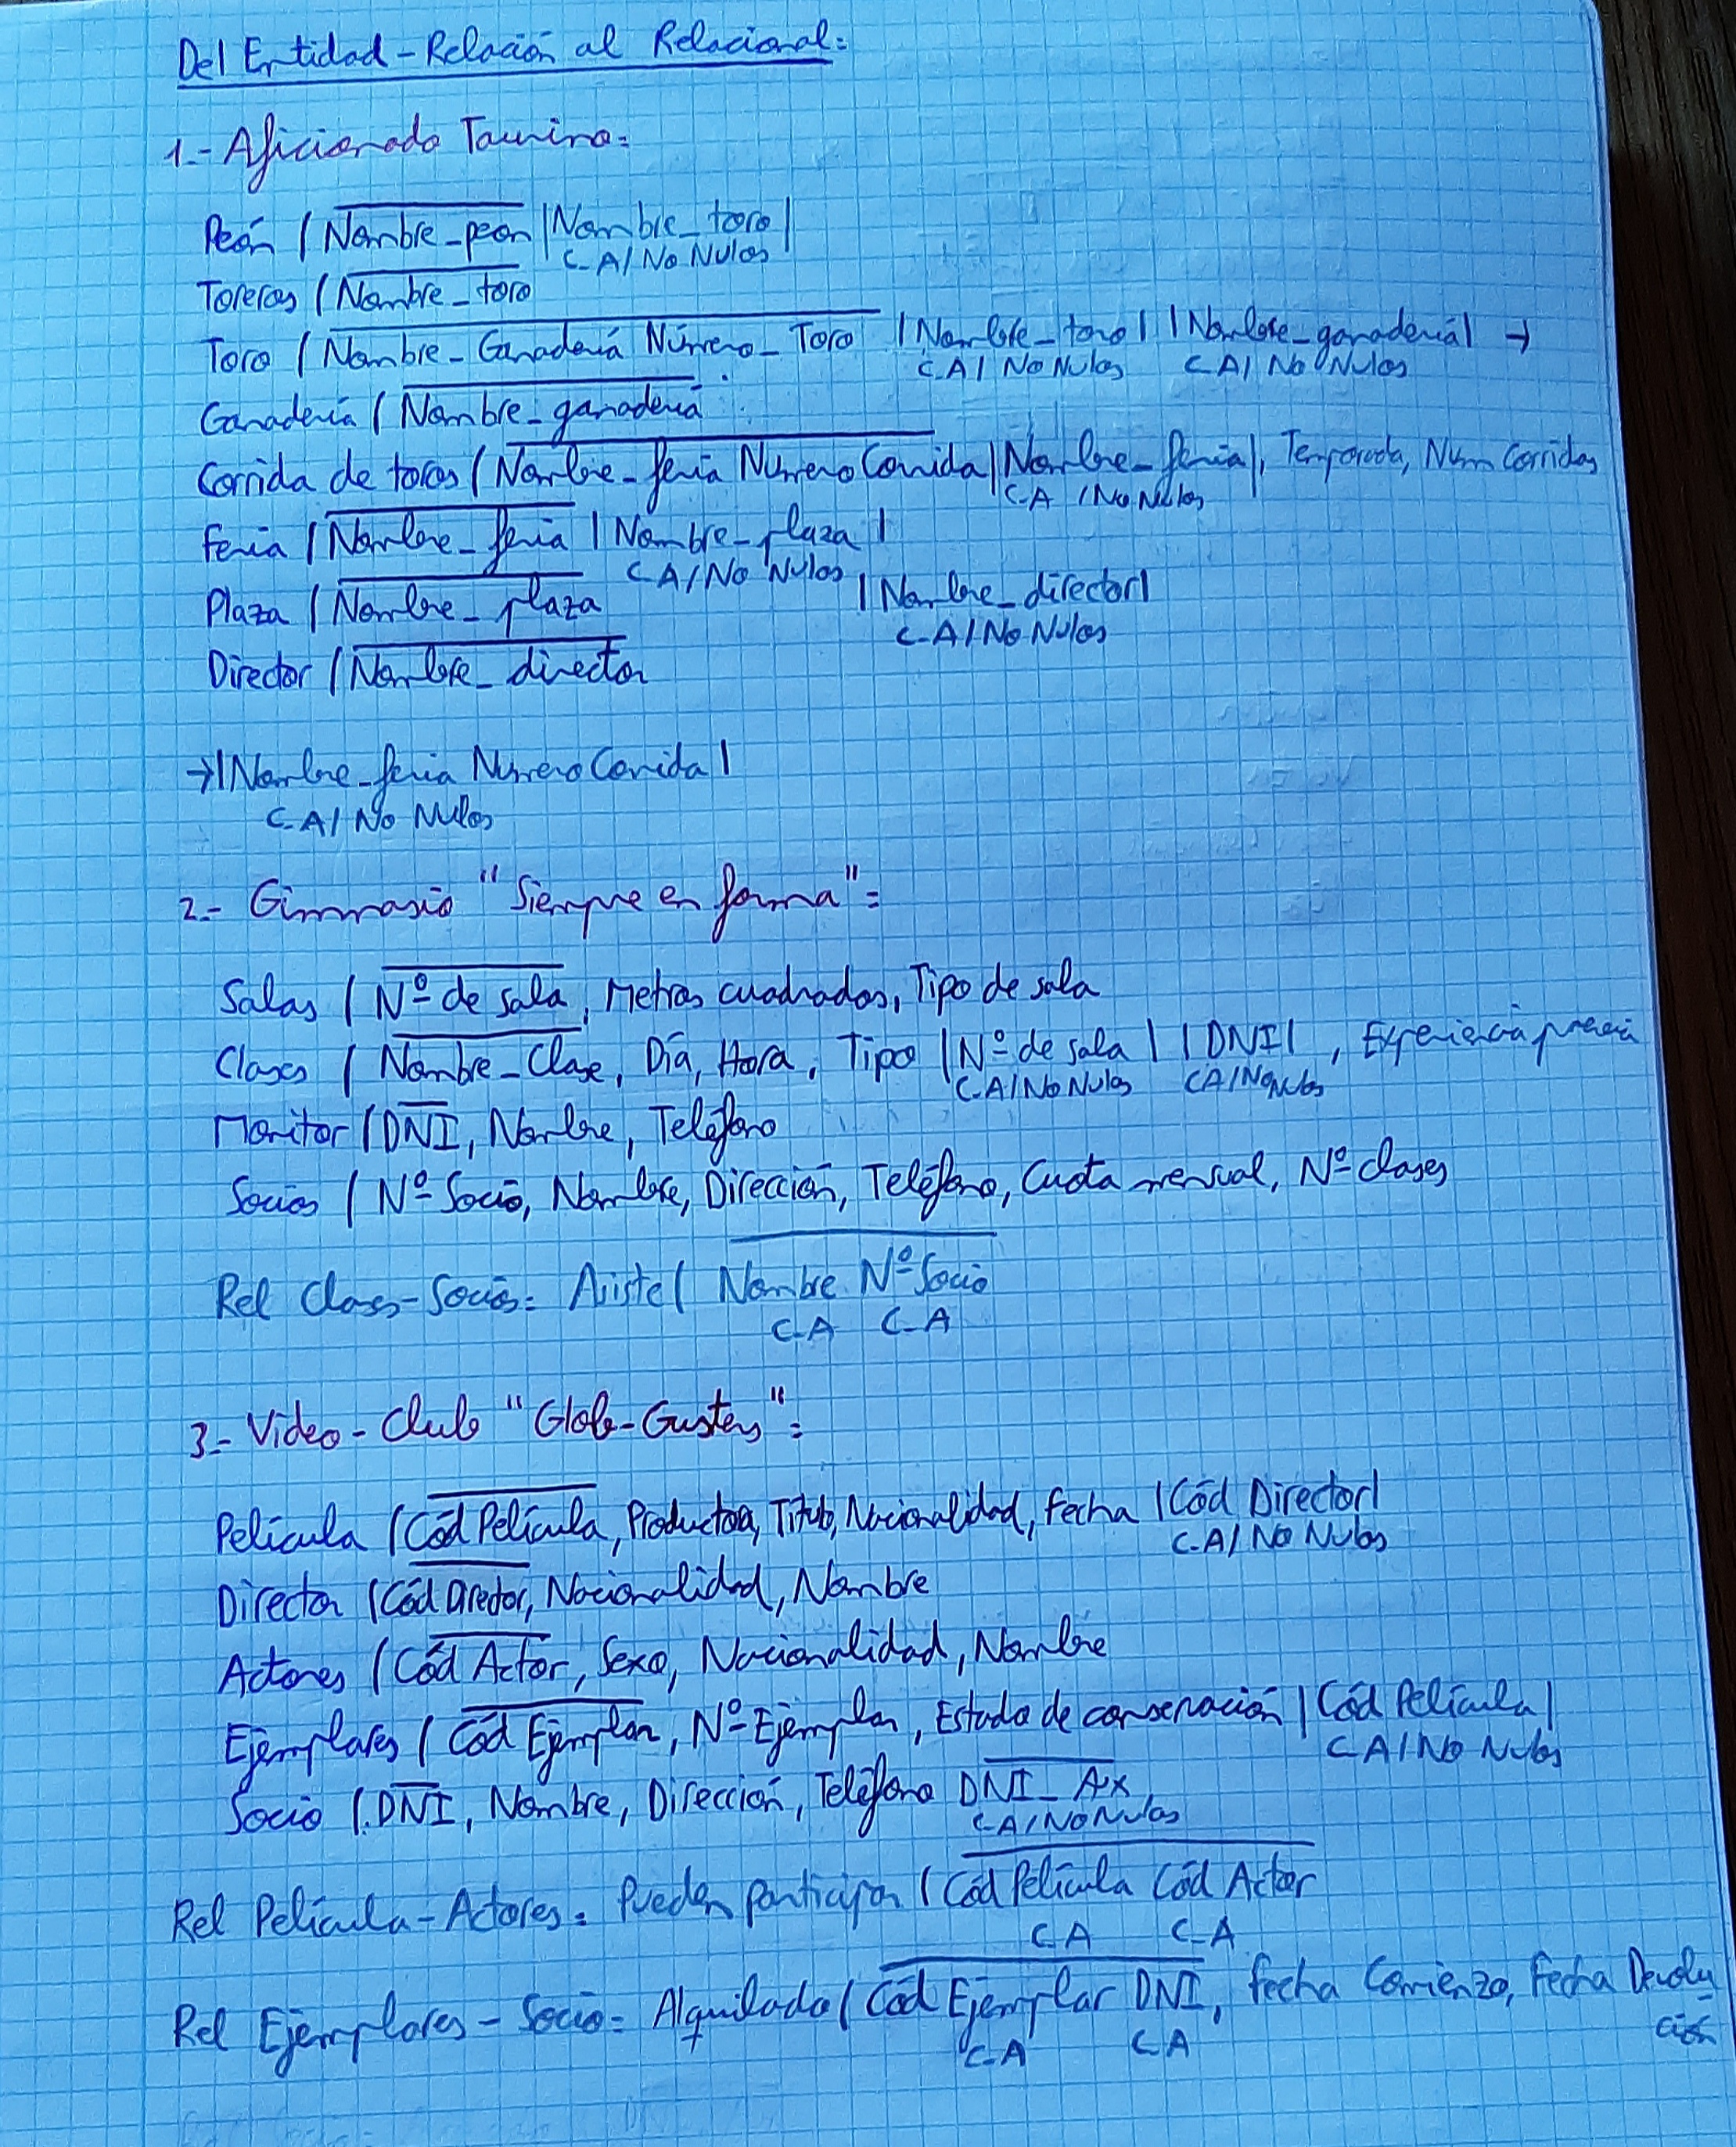 Del Entidad-Relación al Relacional:
1.- Aficionado Taurino:
Peón (Nombre_peon |Nombre_toro|
C.A/No Nulos
Toreros (Nombre_toro
Toro (Nombre-Ganadería Número_Toro |Nombre_toro| |Nombre_ganadería| →
C.A/ No Nulos C.A/ No Nulos
Ganadería (Nombre_ganadería
Corrida de toros (Nombre_feria NumeroCorrida|Nombre_feria|, Temporada, Num Corridas
C.A /No Nulos
Feria (Nombre_feria |Nombre_plaza|
C.A/No Nulos
Plaza (Nombre_plaza |Nombre_director|
C.A/No Nulos
Director (Nombre_director
→|Nombre_feria NumeroCorrida|
C.A/ No Nulos
2.- Gimnasio "Siempre en forma":
Salas (Nº de sala, Metros cuadrados, Tipo de sala
Clases (Nombre_Clase, Día, Hora, Tipo |Nº de sala| |DNI|, Experiencia previa
C.A/No Nulos C.A/No Nulos
Monitor (DNI, Nombre, Teléfono
Socios (Nº Socio, Nombre, Dirección, Teléfono, Cuota mensual, Nº clases
Rel Clases-Socios: Asiste( Nombre Nº Socio
C.A C.A
3.- Video-Club "Glob-Gusters":
Película (Cód Película, Productora, Titulo, Nacionalidad, Fecha |Cód Director|
C.A/ No Nulos
Director (Cód Director, Nacionalidad, Nombre
Actores (Cód Actor, Sexo, Nacionalidad, Nombre
Ejemplares (Cód Ejemplar, Nº Ejemplar, Estado de conservación |Cód Película|
C.A/No Nulos
Socio (DNI, Nombre, Dirección, Teléfono DNI_Ax
C.A/No Nulos
Rel Película-Actores: Pueden participar (Cód Película Cód Actor
C.A C.A
Rel Ejemplares-Socio: Alquilado (Cód Ejemplar DNI, Fecha Comienzo, Fecha Devolu
C.A C.A ción